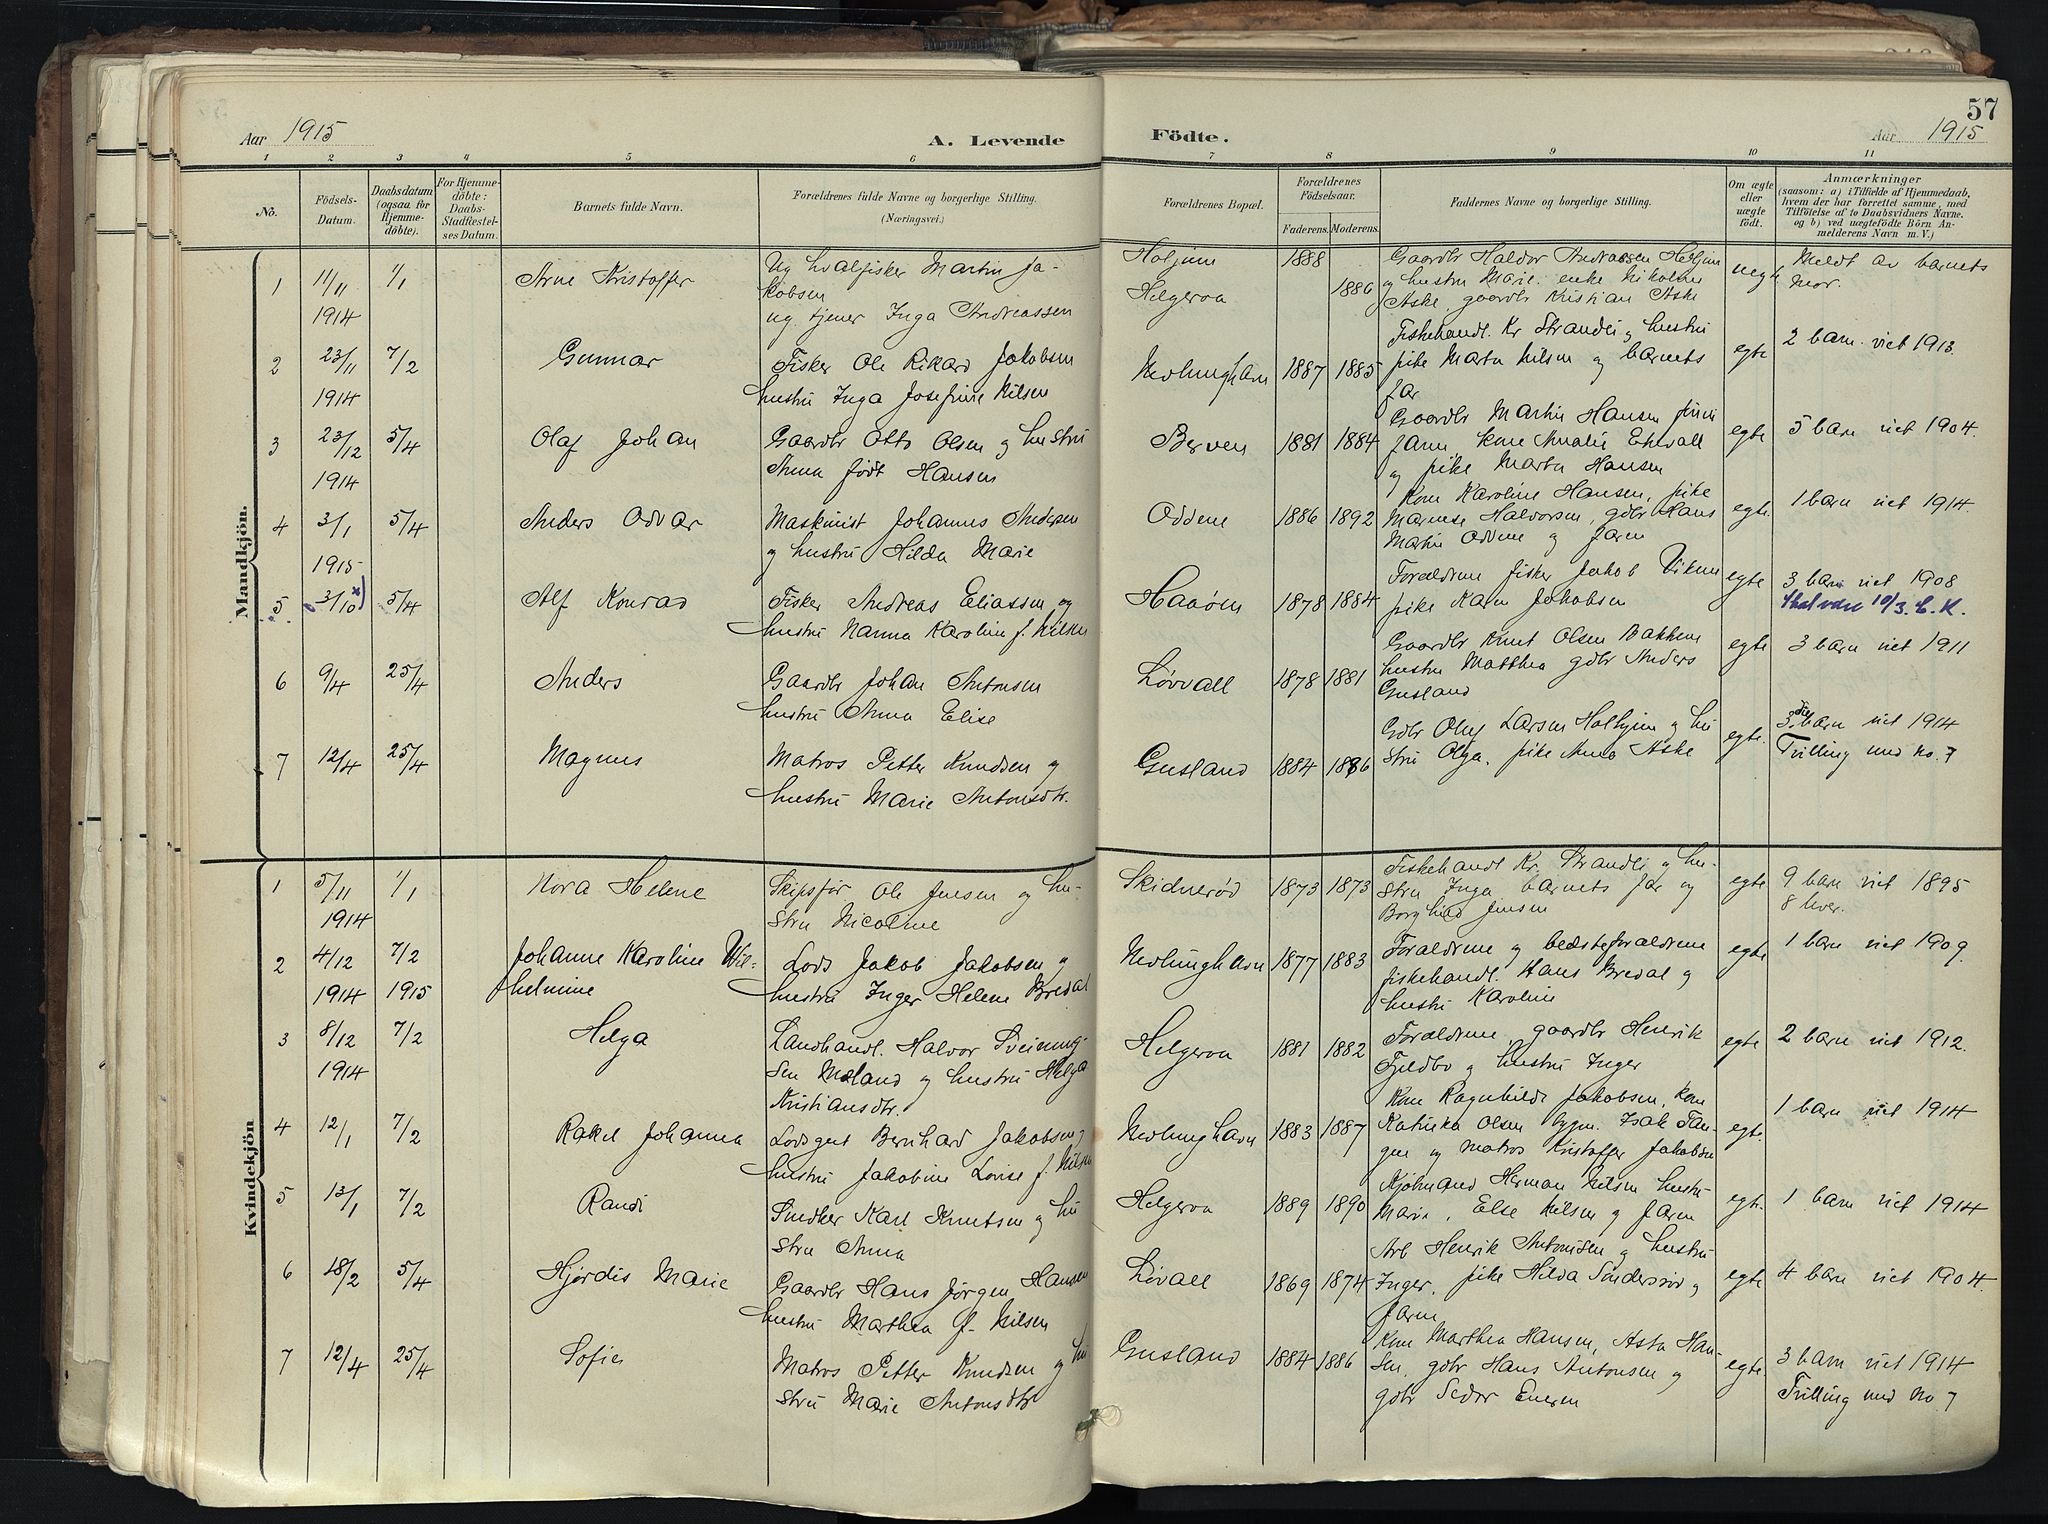 57
Aar 1915
A. Levende
Födte.
Aar 1915
1 2 3 4 5 6 7 8 9 10 11
No.
Födsels-Datum.
Daabsdatum (ogsaa for Hjemme-döbte).
For Hjemme-döbte: Daabs-Stadfæstel-ses Datum.
Barnets fulde Navn.
Forældrenes fulde Navne og borgerlige Stilling. (Næringsvei.)
Forældrenes Bopæl.
Forældrenes Födselsaar.
Faderens. Moderens.
Faddernes Navne og borgerlige Stilling.
Om ægte eller uægte födt.
Anmærkninger
(saasom: a) i Tilfælde af Hjemmedaab, hvem der har forrettet samme, med Tilföielse af to Daabsvidners Navne. og b) ved uægtefödte Börn An-melderens Navn m. V.)
Mandkjön.
1 11/11 1914 1/1 Arne Kristoffer
Ug hvalfisker Martin Ja-
kobsen
ug. tjener Inga Andreassen
Holjem
Helgeroa
1888 1886
Gaardbr Haldor Andreassen Holjem
og hustru Marie. enke Nikoline
Aske gaardbr Kristian Aske
uegte
Meldt av barnets
mor.
2 23/11 1914 7/2 Gunnar
Fisker Ole Rikard Jakobsen
hustru Inga Josefine Nilsen
Nevlunghavn 1887 1885
Fiskehandl. Kr Strandli og hustru
pike Marta Nilsen og barnets
far
egte
2 barn. viet 1913.
3 23/12 1914 5/4 Olaf Johan
Gaardbr Otto Olsen og hustru
Anna født Hansen
Berven 1881 1884
Gaardbr Martin Hansen
faren, kone Amalie
og pike Marta Hansen
egte
5 barn viet 1904.
4 3/1 1915 5/4 Anders Odvar
Maskinist Johannes Andersen
og hustru Hilda Marie
Oddene 1886 1892
Kone Karoline Hansen, pike
Marense Halvorsen, gdbr Hans
Martin Oddene og faren
egte.
1 barn viet 1914.
5 3/10 x) 5/4 Alf Konrad
Fisker Andreas Eliassen og
hustru Nanna Karoline f. Nilsen
Haaöen 1878 1884
Forældrene fisker Jakob Viken
pike Karen Jakobsen
egte
3 barn viet 1908
Skal være 10/3. E. K.
6 9/4 25/4 Anders
Gaardbr Johan Antonsen
hustru Anna Elise
Løvvall 1878 1881
Gaardbr Knut Olsen Bakkene
hustru Matthea gdbr Anders
Gusland
egte
3 barn viet 1911
7 12/4 25/4 Magnus
Matros Petter Knudsen og
hustru Marie Antonsdtr.
Gusland 1884 1886
Gdbr Oluf Larsen Holhjem og hu
stru Olga. pike Anna Aske
egte.
3die barn viet 1914
Tvilling med no. 7
Kvindekjön
1 5/11 1914 1/1 Nora Helene
Skipsfør Ole Jensen og hu-
stru Nicoline
Skidnerød 1873 1873
Fiskehandl Kr. Strandli og hu-
stru Inga barnets far og
Borghild Jensen
egte
9 barn viet 1895
8 lever.
2 4/12 1914 7/2 1915 Johanne Karoline Wil=
helmine
Lods Jakob Jakobsen og
hustru Inger Helene Bredal
Nevlunghavn 1877 1883
Forældrene og bedsteforældrene
fiskehandl. Hans Bredal og
hustru Karoline
egte
1 barn viet 1909.
3 8/12 1914 7/2 Helga
Landhandl. Halvor Sveinung-
sen Mæland og hustru Helga
Kristiansdtr.
Helgeroa 1881 1882
Forældrene, gaardbr Henrik
Fjeldbo og hustru Inger
egte
2 barn viet 1912.
4 12/1 7/2 Rakel Johanna
Lodsgut Bernhard Jakobsen og
hustru Jakobine Lovise f. Nilsen
Nevlunghavn 1883 1887
Kone Ragnhilde Jakobsen, kone
Katinka Olsen bygm. Isak Tan-
gen og matros Kristoffer Jakobsen
egte.
1 barn viet 1914
5 13/1 7/2 Randi
Snedker Karl Knutsen og hu
stru Anna
Helgeroa 1889 1890
Kjøbmand Herman Nilsen hustru
Marie, Else Nilsen og faren
egte.
1 barn viet 1914
6 18/2 5/4 Hjørdis Marie
Gaardbr Hans Jørgen Hansen
hustru Marthea f. Nilsen
Løvall 1869 1874
Arb Henrik Antonisen og hustru
Inger, pike Hilda Sondersrød og
faren
egte
4 barn viet 1904.
7 12/4 25/4 Sofie
Matros Petter Knudsen og hu
stru Marie Antonsdtr
Gusland 1884 1886
Kone Marthea Hansen, Asta Han-
sen, gdbr Hans Antonsen og
gdbr Sedor Enersen
egte.
3 barn viet 1914
Tvilling med no 7